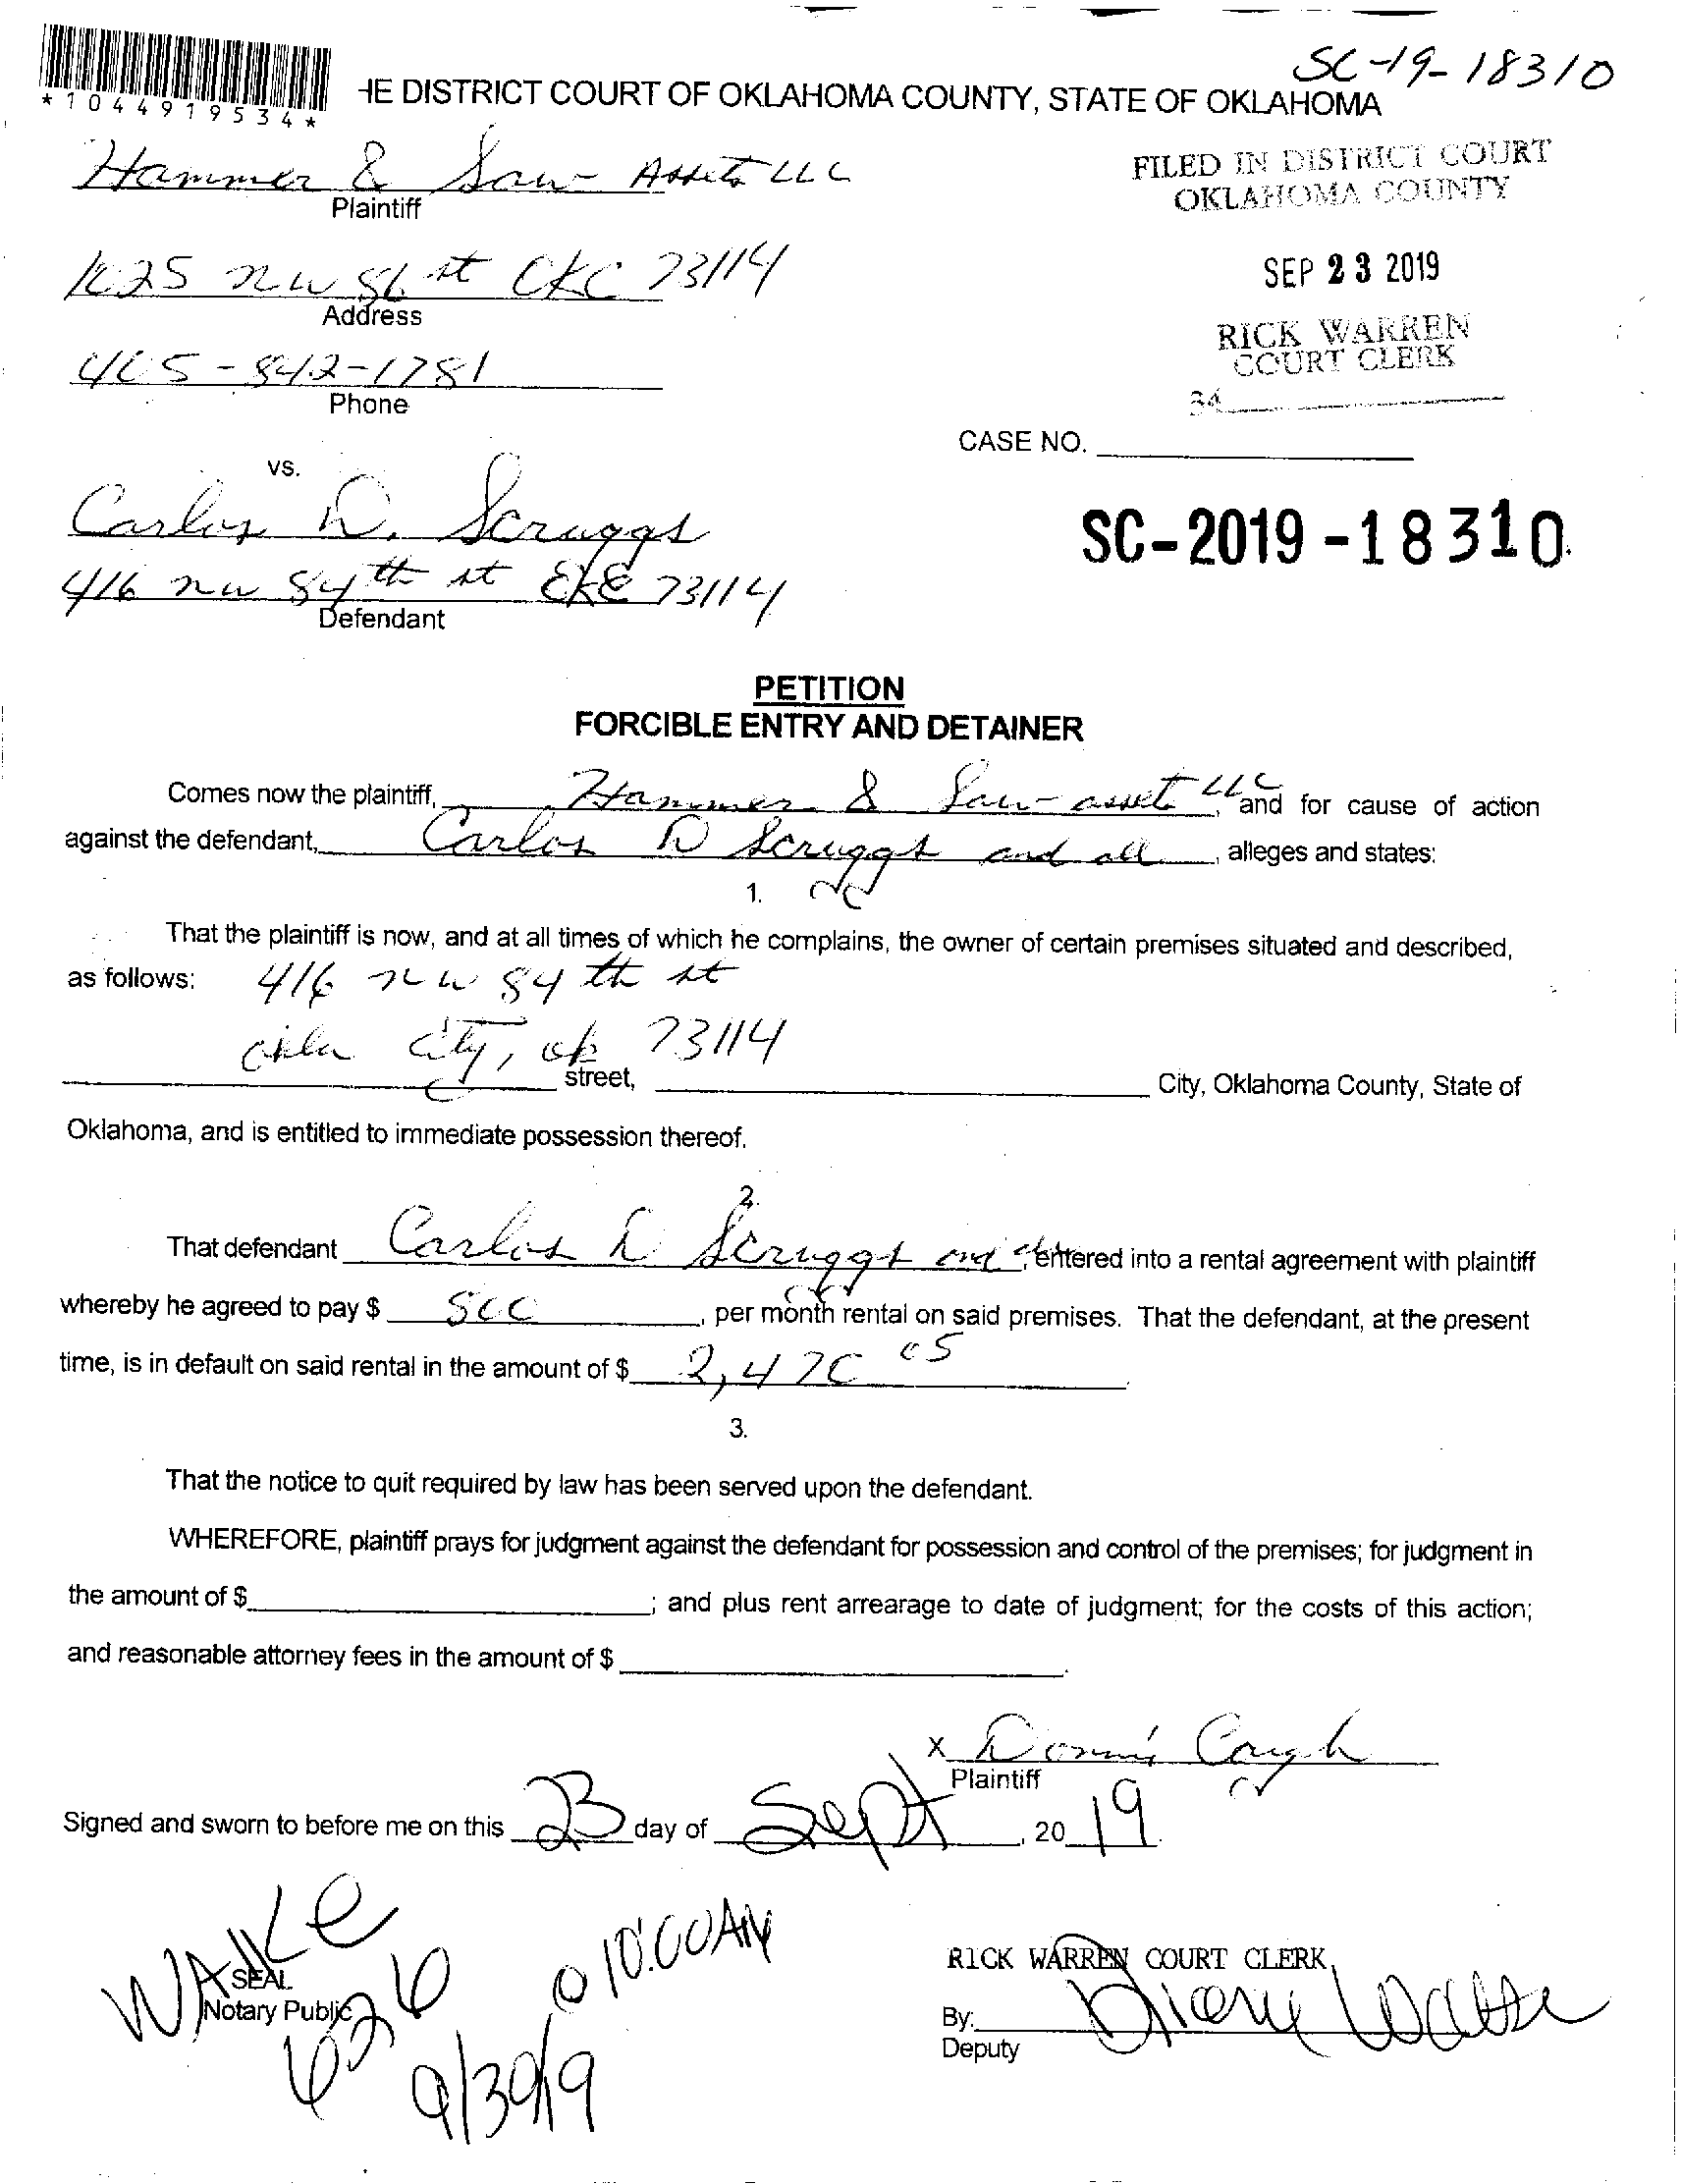 SC-19-18310
*1044919534*
HE DISTRICT COURT OF OKLAHOMA COUNTY, STATE OF OKLAHOMA
Hammer & Saw Assets LLC
Plaintiff
FILED IN DISTRICT COURT
OKLAHOMA COUNTY
1025 NW 86 st OKC 73114
Address
SEP 23 2019
RICK WARREN
COURT CLERK
405-842-1781
Phone
34
CASE NO.
vs.
Carlos D. Scruggs
SC-2019-18310
416 nw 84th st OKC 73114
Defendant
PETITION
FORCIBLE ENTRY AND DETAINER
Comes now the plaintiff, Hammer & Saw asset LLC, and for cause of action
against the defendant, Carlos D Scruggs and all, alleges and states:
1. occ
That the plaintiff is now, and at all times of which he complains, the owner of certain premises situated and described,
as follows: 416 nw 84 th st
Okla City, ok 73114
street, City, Oklahoma County, State of
Oklahoma, and is entitled to immediate possession thereof.
2.
That defendant Carlos D Scruggs and all, entered into a rental agreement with plaintiff
whereby he agreed to pay $ 800, per month rental on said premises. That the defendant, at the present
time, is in default on said rental in the amount of $ 2,470 05.
3.
That the notice to quit required by law has been served upon the defendant.
WHEREFORE, plaintiff prays for judgment against the defendant for possession and control of the premises; for judgment in
the amount of $ ; and plus rent arrearage to date of judgment; for the costs of this action;
and reasonable attorney fees in the amount of $ .
X Donnie Cough
Plaintiff
Signed and sworn to before me on this 23 day of Sept, 2019.
WALKE
626 @ 10:00AM
9/30/19
SEAL
Notary Public
RICK WARREN COURT CLERK
By:
Deputy